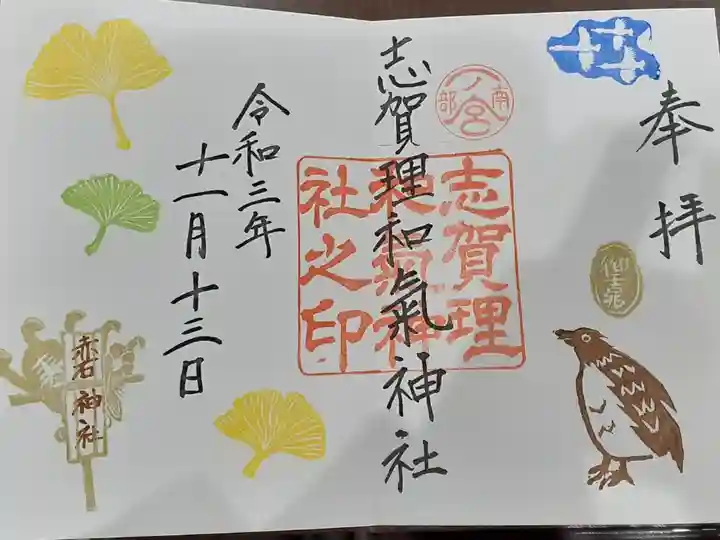 奉拝
南部
一ノ宮
志賀理和氣神社
志賀理
和氣神
社之印
令和三年
十一月十三日
赤石神社